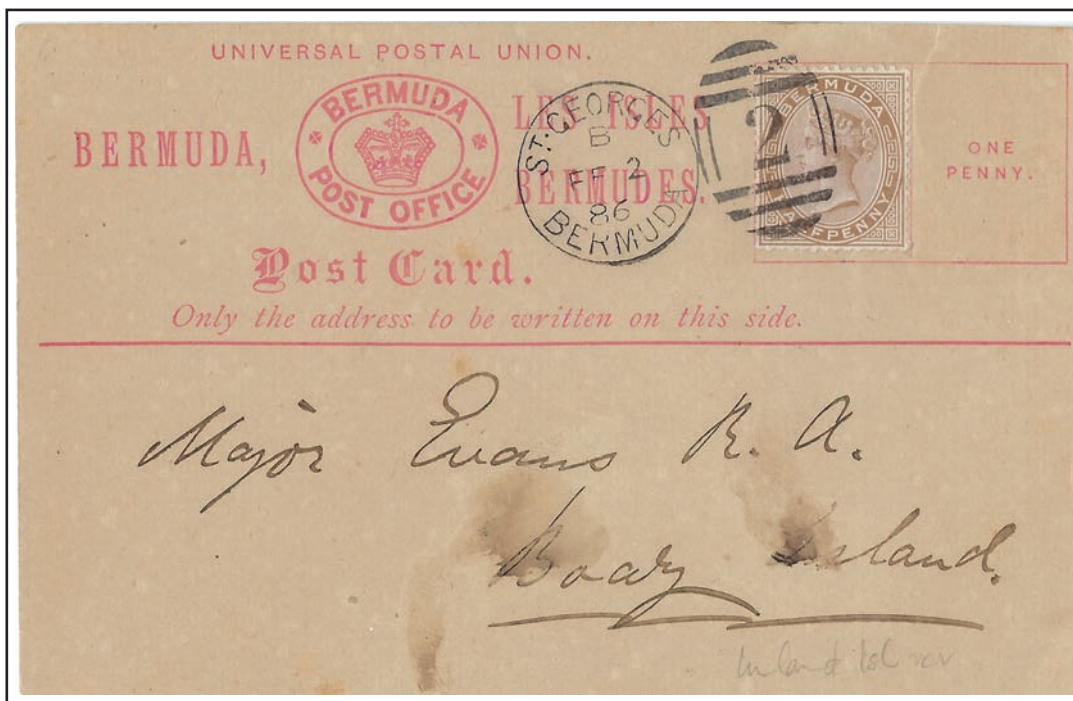 UNIVERSAL POSTAL UNION.
BERMUDA,
BERMUDA
POST OFFICE
LES ISLES
BERMUDES.
ST. GEORGES
B
FE 2
86
BERMUDA
2
BERMUDA
HALFPENNY
ONE
PENNY.
Post Card.
Only the address to be written on this side.
Major Evans R. A.
Boaz Island.
Inland